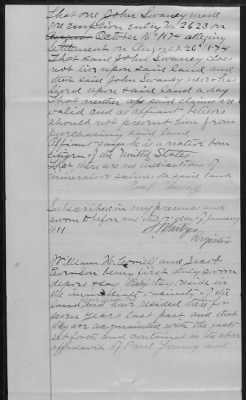 That one John Swaney made
emption entry No 2623 on
August October 16th 1874 alleging
Settlement on August 26th 1874
That said John Swaney does
not live upon said land and
that said John Swaney never
lived upon said land a day
That neither of said claims are
valid and as affiant believes
should not him from
purchasing said land
Affiant says he is a native born
citizen of the United States
That there are no indications of
minerals or salines on said land
Young
Subscribed in my presence and
sworn to before me this 17 day of January
1881
Register
William H. and
being first duly sworn
depose & say that they reside in
the immediate vicinity of the
land and have resided there for
seven years last past and that
they are acquainted with the facts
set forth and contained in the above
affidavit of Young and